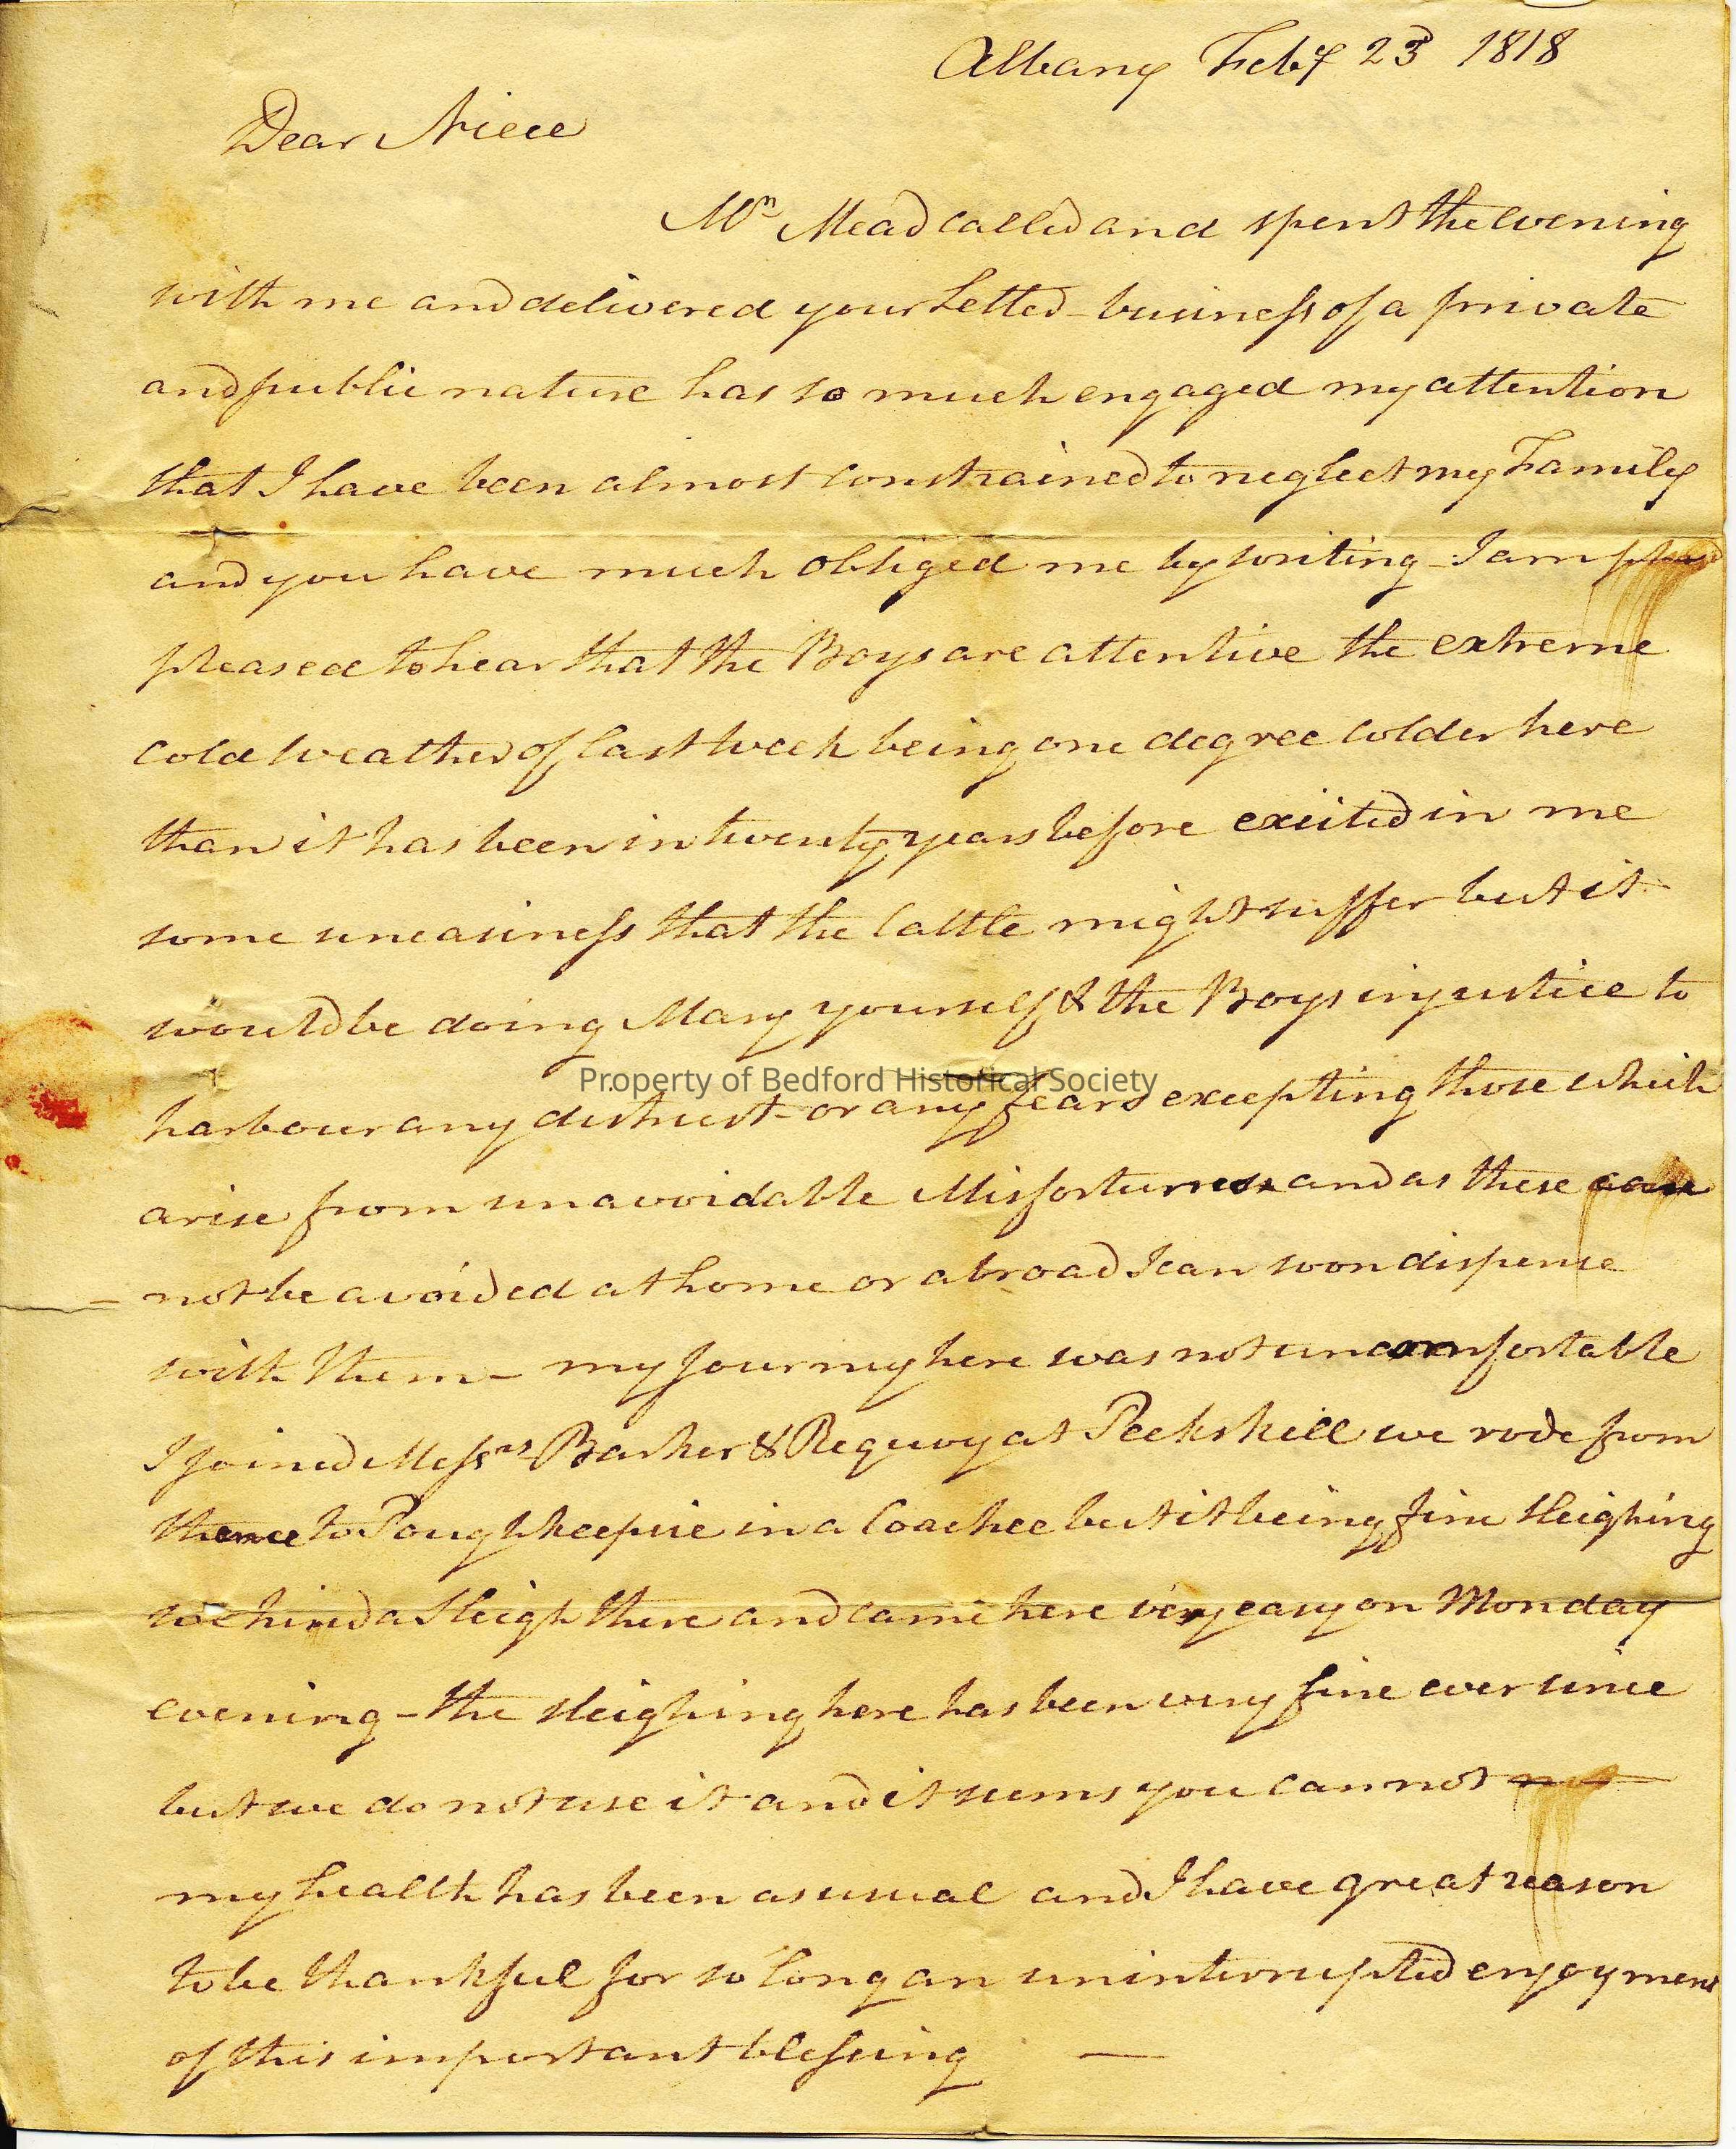 Albany Feby 23 1818
Dear Niece
Mr Mead called and spent the evening
with me and delivered your Letter - business of a private
and public nature has so much engaged my attention
that I have been almost constrained to neglect my Family
and you have much obliged me by writing - I am
pleased to hear that the Boys are attentive the extreme
cold weather of last week being one degree colder here
than it has been in twenty years before excited in me
some uneasiness that the Cattle might suffer but it
would be doing Mary yourself & the Boys injustice to
Property of Bedford Historical Society
harbour any distrust or any fears excepting those which
arise from unavoidable Misfortunes and as these can
not be avoided at home or abroad I can soon dispense
with them - my Journey here was not uncomfortable
I joined Messrs Barker & Requoy at Peekskill we rode from
thence to Poughkeepsie in a Coachee but it being fine Sleighing
we hired a Sleigh there and came here very easy on Monday
evening - the sleighing here has been very fine ever since
but we do not use it and it seems you cannot not
my health has been as usual and I have great reason
to be thankful for so long an uninterrupted enjoyment
of this important blessing —